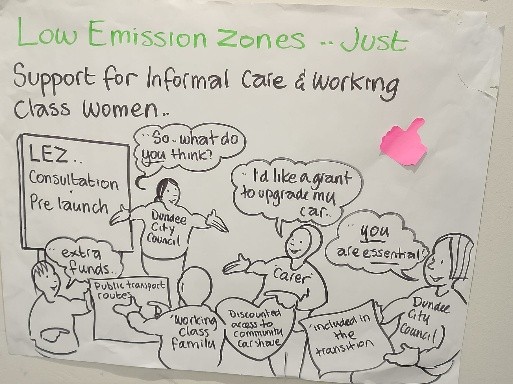 Low Emission Zones .. Just
Support for Informal Care & Working
Class Women..
LEZ..
Consultation
Pre launch
So.. what do
you think?
Dundee
City
Council
I'd like a grant
to upgrade my
car..
you
are essential
extra
funds..
Public transport
routes
Working
class
family
Discounted
access to
community
car share
Carer
included in
the
transition
Dundee
City
Council